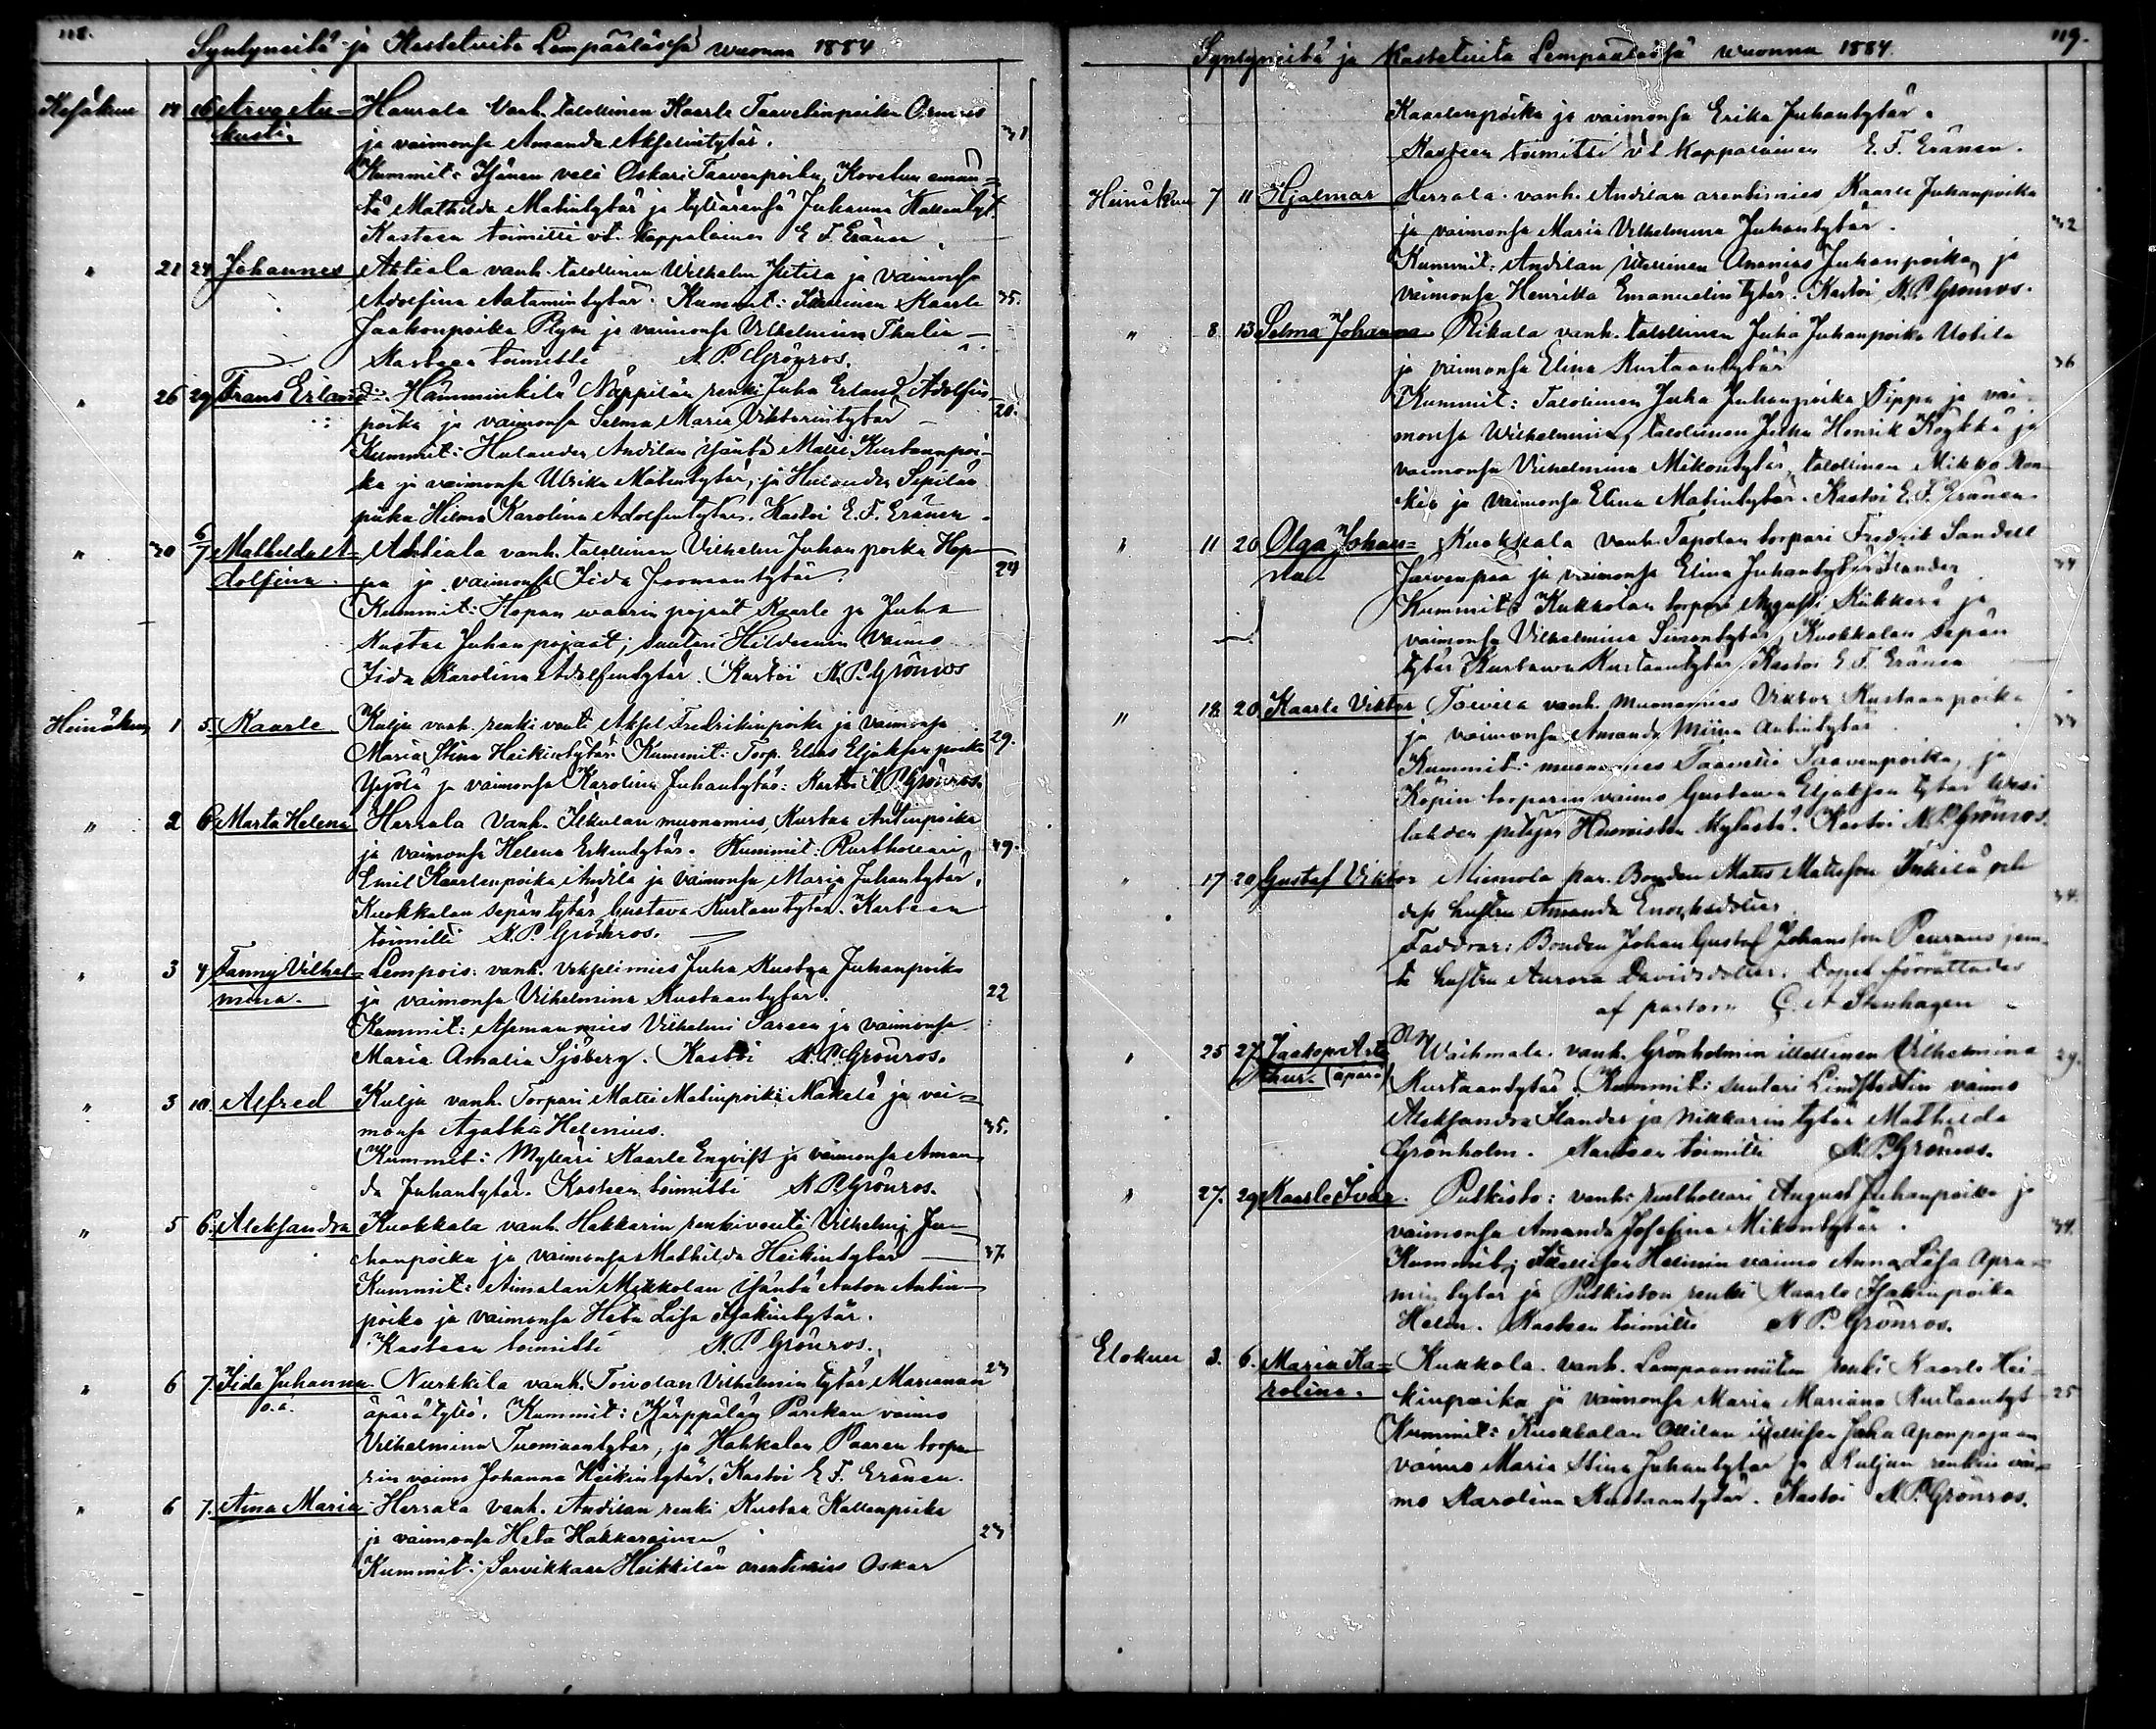 118.
Syntyneitä ja Kastetuita Lempäälässä wuonna 1884
Kesäkuu 14 16 Arvo Au- Haurala vanh. talollinen Kaarle Taavetinpoika
kusti. ja vaimonsa Amanda Akselintytär. 31
Kummit: Isännen veli Oskari Taavenpoika, Kovelun emän-
tä Mathilda Matintytär ja tyttärensä Juhanna Kallentyt.
Kasteen toimitti vt. Kappalainen E F. Eränen
" 21 24 Johannes Ahtiala vanh. talollinen Wilhelm Jutila ja vaimonsa
Adolfina Aatamintytär. Kummit: Itsellinen Kaarle 35.
Jaakonpoika Rym ja vaimonsa Vilhelmiina Thalin
Kasteen toimitti N. P. Grönros.
" 26 29 Frans Erland Hämminkilä Näppilän renki Juha Erland Adolfin-
poika ja vaimonsa Selma Maria Viktorintytär 20.
Kummit: Hulauden Andilan isäntä Matti Kustaanpoi-
ka ja vaimonsa Ulrika Matintytär, ja Hulauden Sepilän
piika Hilma Karolina Adolfintytär. Kastoi E. F. Eränen.
" 30 6/7 Mathilda A- Ahtiala vanh. talollinen Vilhelm Juhanpoika Hop-
dolfina. pa ja vaimonsa Iida Joonaantytär. 24
Kummit: Hopan waarin pojat Kaarle ja Juha
Kustaa Juhanpojaat, suutari Hildeenin vaimo
Iida Karolina Adolfintytär. Kastoi N. P. Grönros
Heinäkuu 1 5. Kaarle Kulju vanh. renkivouti Aksel Fredrikinpoika ja vaimonsa
Maria Stina Heikintytär. Kummit: Torp. Elias Eljaksenpoika 29.
Yrjölä ja vaimonsa Karolina Juhantytär. Kastoi N P. Grönros.
" 2 6 Marta Helena Herrala vanh. Ilkulan muonamies, Kustaa Antinpoika
ja vaimonsa Helena Erkintytär. Kummit: Rusthollari 39.
Emil Kaarlenpoika Andila ja vaimonsa Maria Juhantytär,
Kuokkalan sepän tytär Gustava Kustaantytär. Kasteen
toimitti N. P. Grönros.
" 3 4 Fanny Vilhel- Lempois: vanh. vekselimies Juha Kustaa Juhanpoika
mina. ja vaimonsa Vilhelmina Kustaantytär. 22
Kummit: Asemanmies Vilhelmi Saren ja vaimonsa
Maria Amalia Sjöberg. Kastoi N. P. Grönros.
" 3 10 Alfred Kulju vanh. Torpari Matti Matinpoika Mäkelä ja vai-
monsa Agatha Helenius. 35.
Kummit: Mylläri Kaarle Engvist ja vaimonsa Aman-
da Juhantytär. Kasteen toimitti N. P. Grönros.
" 5 6. Aleksandra Kuokkala vanh. Hakkarin renkivouti Vilhelmi Ju-
hanpoika ja vaimonsa Mathilda Heikintytär 37.
Kummit: Aimalan Mikkolan isäntä Anton Antin-
poika ja vaimonsa Heta Liisa Isakintytär.
Kasteen toimitti N. P. Grönros.
" 6 7. Iida Juhanna Nurkkila vanh. Toivolan Vilhelmin tytär Mariannan 23
o. ä. äpärätyttö. Kummit: Kärppälän Parikan vaimo
Vilhelmina Tuomaantytär, ja Hakkalan Paaren torpa-
rin vaimo Johanna Heikintytär. Kastoi E F. Eränen.
" 6 7. Aina Maria Herrala vanh. Andilan renki Kustaa Kallenpoika
ja vaimonsa Heta Hakkarainen 23
Kummit: Sarvikkaan Heikkilän arentimies Oskar
119.
Syntyneitä ja Kastetuita Lempäälässä wuonna 1884.
Kaarlenpoika ja vaimonsa Erika Juhantytär.
Kasteen toimitti vt Kappalainen E. F. Eränen.
Heinäkuu 7 11 Hjalmar Herrala. vanh. Andilan arentimies Kaarle Juhanpoika
ja vaimonsa Maria Vilhelmina Juhantytär. 32
Kummit: Andilan itsellinen Ananias Juhanpoika, ja
vaimonsa Henrikka Emanuelintytär. Kastoi N. P Grönros.
" 8. 13 Selma Johanna Rikala vanh. talollinen Juha Juhanpoika Uotila
ja vaimonsa Elina Kustaantytär 36
Kummit: Talollinen Juha Juhanpoika Pippo ja vai-
monsa Wilhelmina, talollinen Juha Henrik Köykkä ja
vaimonsa Vilhelmina Mikontytär, talollinen Mikko Kon-
kia ja vaimonsa Elina Matintytär. Kastoi E. F. Eränen.
" 11 20 Olga Johan- Kuokkala vanh. Tapolan torpari Fredrik Sandell
na Järvenpää ja vaimonsa Elina Juhantytär Ilander 34
Kummit: Kukkolan torpari Augusti Kukkura ja
vaimonsa Vilhelmina Simontytär, Kuokkalan sepän
tytär Kustaava Kustaantytär. Kastoi E F. Eränen
" 18. 20 Kaarle Viktor Toivila vanh. muonamies Viktor Kustaanpoika
ja vaimonsa Amanda Miina Antintytär 33
Kummit: muonamies Taavetti Taavenpoika, ja
Köpin torparin vaimo Gustaava Eljaksen tytär Wesi-
lahden pitäjän Kylästä. Kastoi N. P. Grönros.
" 17 20 Gustaf Viktor Miemola par. Bonden Matts Mattsson Inkilä och
dess hustru Amanda Enochsdotter. 34.
Faddrar: Bonden Johan Gustaf Johansson Peurans jem-
te hustru Aurora Davidsdotter. Dopet förrättades
af pastorn C. A Stenhagen
" 25 27 Jaakop Art- Waihmala. vanh. Grönholmin itsellinen Vilhelmina
thur. (äpärä) Kustaantytär. Kummit: suutari Lindstedtin vaimo 29.
Aleksandra Ilander ja Nikkarin tytär Mathilda
Grönholm. Kasteen toimitti N. P. Grönros.
" 27. 29 Kaarle Ivar. Putkisto: vanh: rusthollari August Juhanpoika ja
vaimonsa Amanda Josefina Mikontytär. 34.
Kummit: Itsellisen Helinin vaimo Anna Liisa Apra-
min tytär ja Putkiston renki Kaarlo Isakinpoika
Helin. Kasteen toimitti N. P. Grönros.
Elokuu 3. 6. Maria Ka- Kukkola. vanh. Lempaanniitun renki Kaarlo Hei-
rolina. kinpoika ja vaimonsa Maria Mariana Kustaantyt 25
Kummit: Kuokkalan Ollilan itsellisen Juha Aponpojaan
vaimo Maria Stina Juhantytär ja Kuljun renkin vai-
mo Karolina Kustaantytär. Kastoi N. P. Grönros.